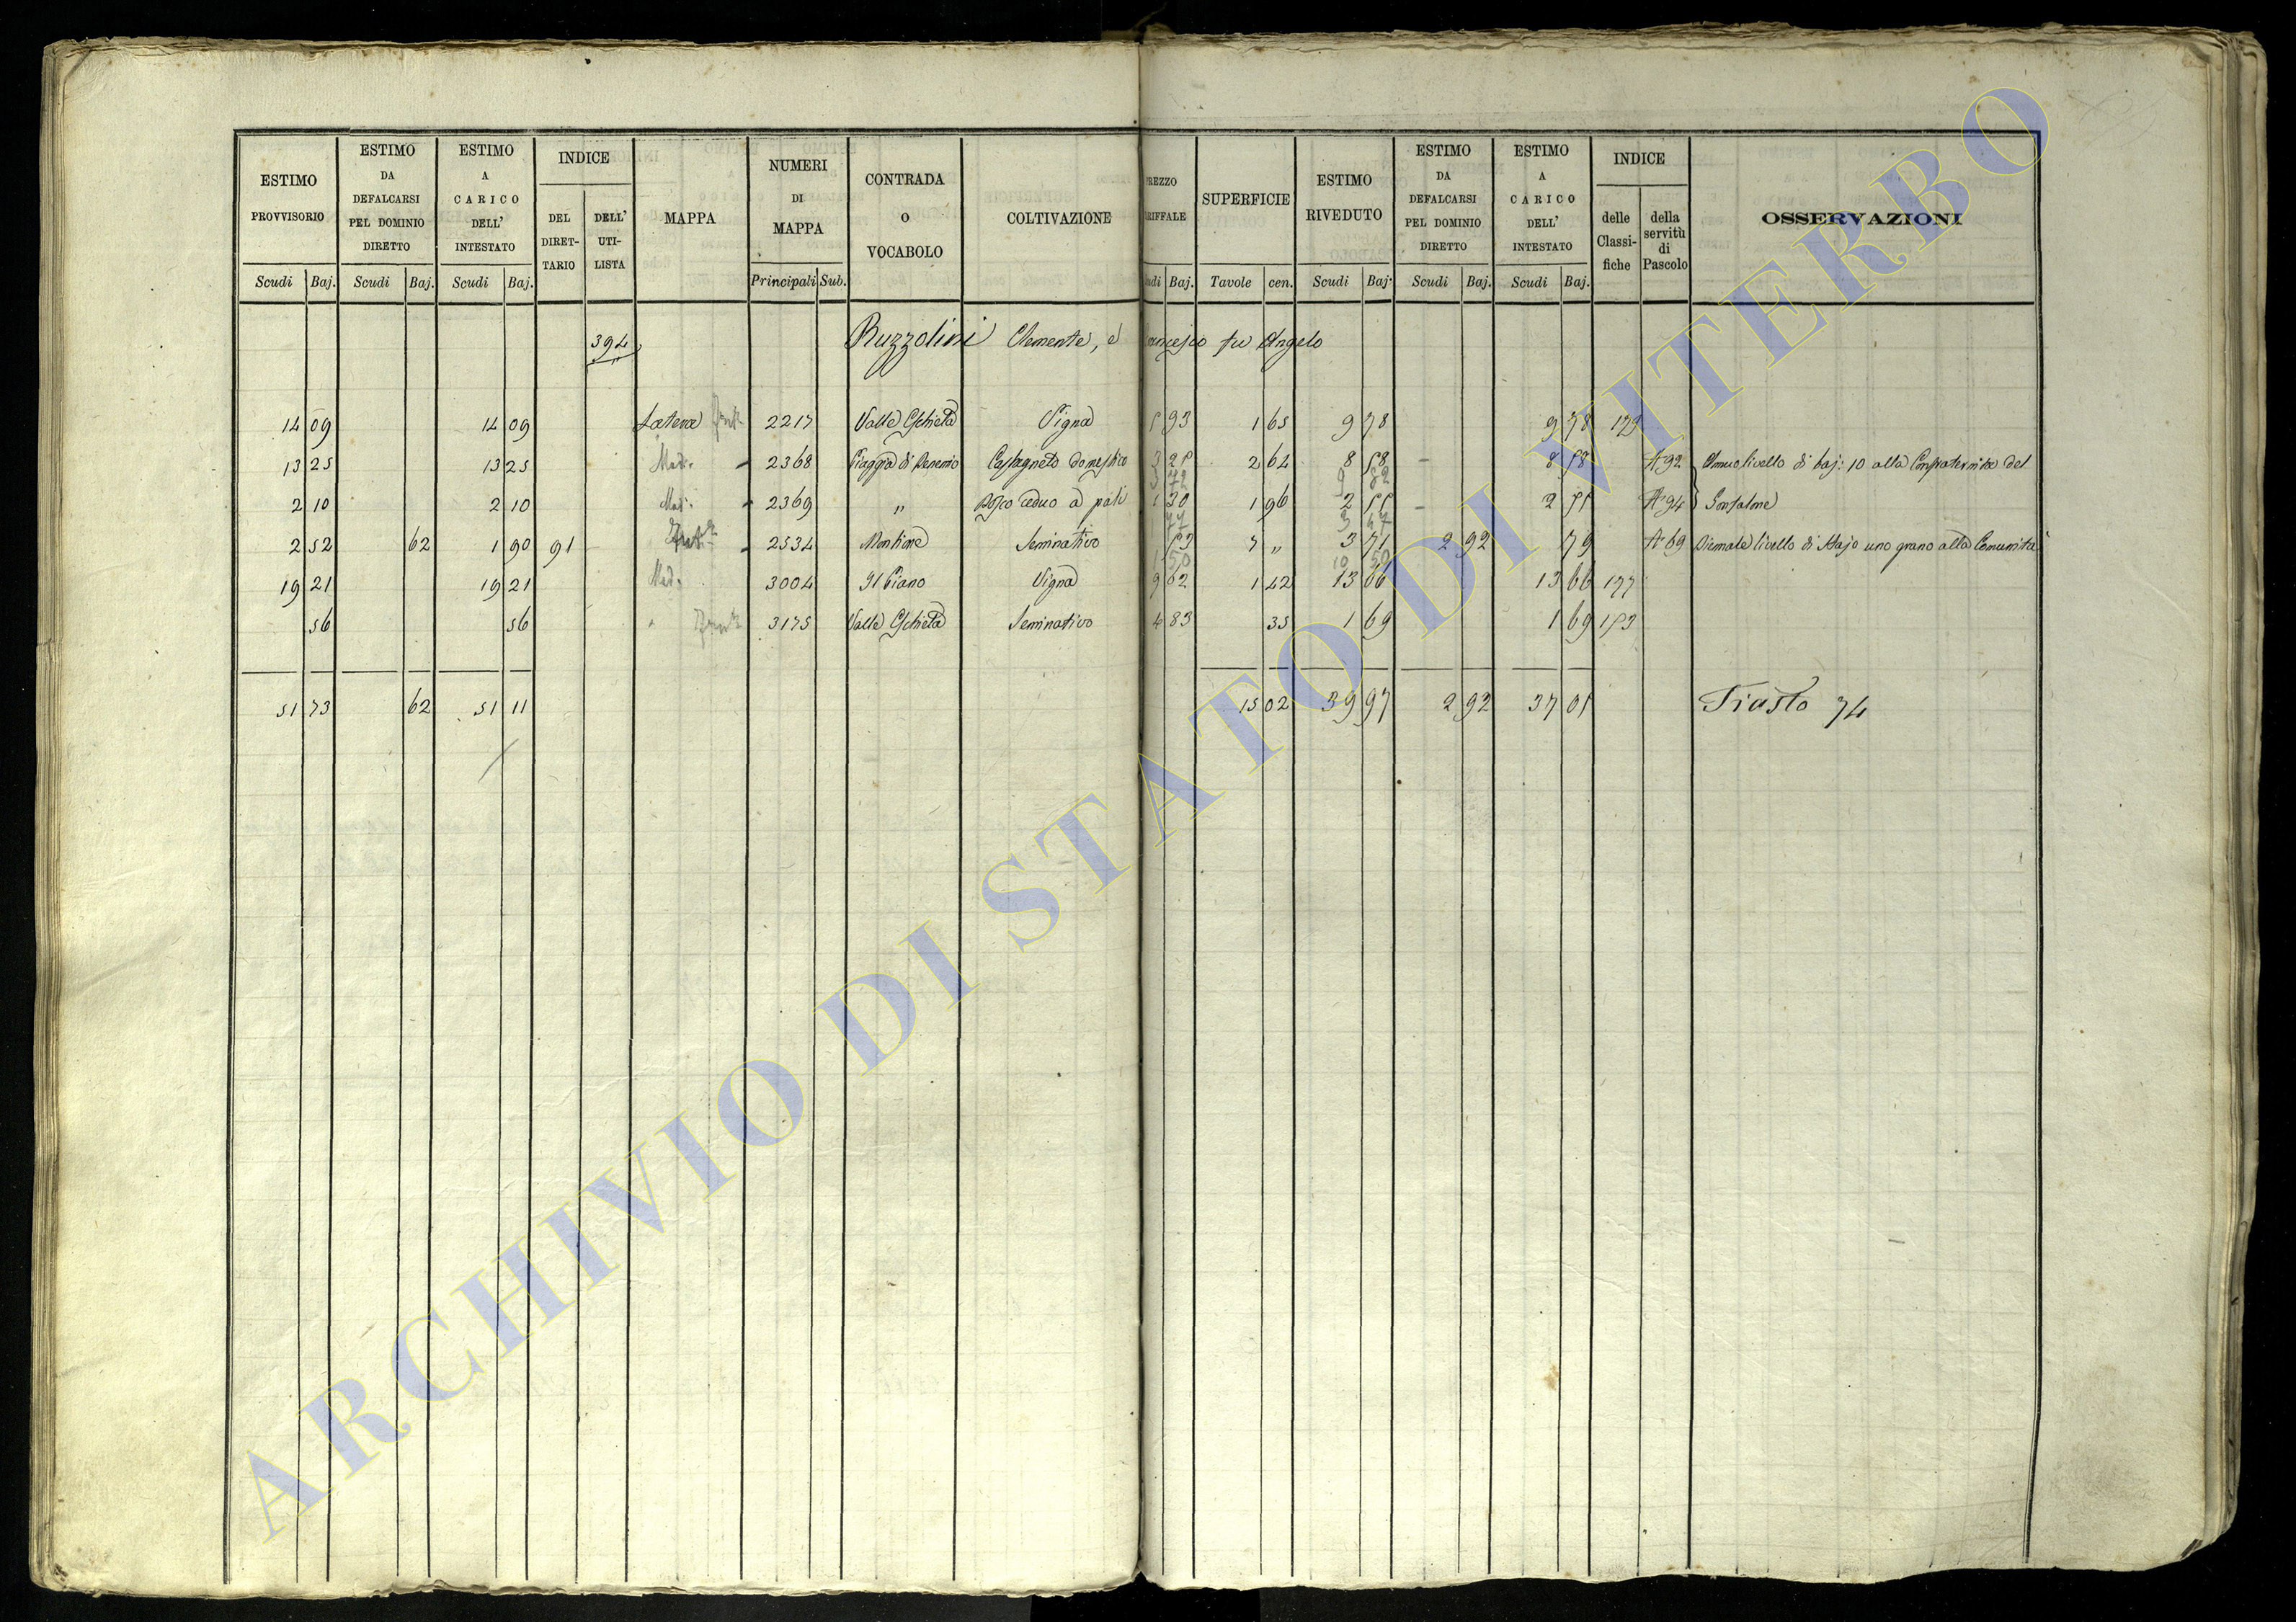 ESTIMO PROVVISORIO Scudi Baj. | ESTIMO DA DEFALCARSI PEL DOMINIO DIRETTO Scudi Baj. | ESTIMO A CARICO DELL' INTESTATO Scudi Baj. | INDICE DEL DIRETTARIO DELL' UTILISTA | MAPPA | NUMERI DI MAPPA Principali Sub. | CONTRADA O VOCABOLO | COLTIVAZIONE | PREZZO TARIFFALE Scudi Baj. | SUPERFICIE Tavole cen. | ESTIMO RIVEDUTO Scudi Baj. | ESTIMO DA DEFALCARSI PEL DOMINIO DIRETTO Scudi Baj. | ESTIMO A CARICO DELL' INTESTATO Scudi Baj. | INDICE delle Classifiche della servitù di Pascolo | OSSERVAZIONI
394 Ruzzolini Clemente, e Francesco fu Angelo
14 09 14 09 Latera 2217 Valle Schieta Vigna 5 93 1 65 9 78 9 78 179
13 25 13 25 Mad. 2368 Piaggia di Castagneto domestico 2 62 8 58 8 58 A 92 Annuo livello di baj: 10 alla Confraternita del
2 10 2 10 Mad. 2369 " Bosco ceduo a pali 1 30 1 96 2 55 2 55 A 94 Gonfalone
2 52 62 1 90 91 2534 Montione Seminativo 53 7 " 3 71 2 92 79 A 69 livello di Stajo uno grano alla Comunità
1 50 10 50
19 21 19 21 Mad. 3004 Il Piano Vigna 9 62 1 42 13 66 13 66 177
56 56 3175 Valle Schieta Seminativo 4 83 35 1 69 1 69 153
51 73 62 51 11 15 02 39 97 2 92 37 05 74
ARCHIVIO DI STATO DI VITERBO